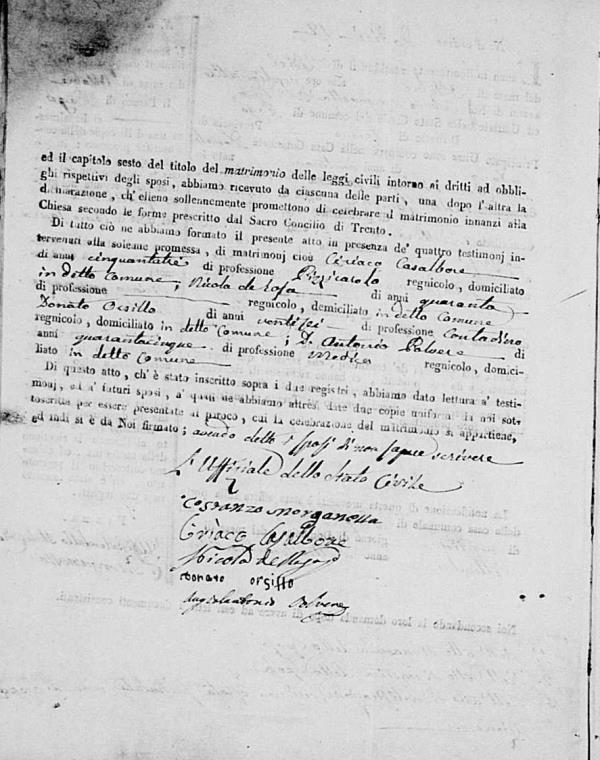 ed il capitolo sesto del titolo del matrimonio delle leggi civili intorno ai dritti ed obbli-
ghi rispettivi degli sposi, abbiamo ricevuto da ciascuna delle parti, una dopo l'altra la
dichiarazione, ch'elleno sollennemente promettono di celebrare il matrimonio innanzi alla
Chiesa secondo le forme prescritto dal Sacro Concilio di Trento.
Di tutto ciò ne abbiamo formato il presente atto in presenza de' quattro testimonj in-
tervenuti alla solenne promessa, di matrimonj cioè Ciriaco Casalbore
di anni cinquantatré di professione Pizzicarolo regnicolo, domiciliato
in detto Comune; Nicola de di anni quaranta
di professione regnicolo, domiciliato in detto Comune
Donato Orsillo di anni ventisei di professione contadino
regnicolo, domiciliato in detto Comune; D. Antonio Polvere di
anni quarantacinque di professione Medico regnicolo, domici-
liato in detto Comune
Di questo atto, ch'è stato inscritto sopra i due registri, abbiamo dato lettura a' testi-
monj, ed a' futuri sposi, a' quali ne abbiamo altresì date due copie uniformi da noi sot-
toscritte per essere presentate al paroco, cui la celebrazione del matrimonio si appartiene,
ed indi si è da Noi firmato; avendo detto i sposi di non sapere scrivere
L'Uffiziale dello Stato Civile
Costanzo Morganella
Ciriaco Casalbore
Nicola de
Donato Orsillo
Polvere